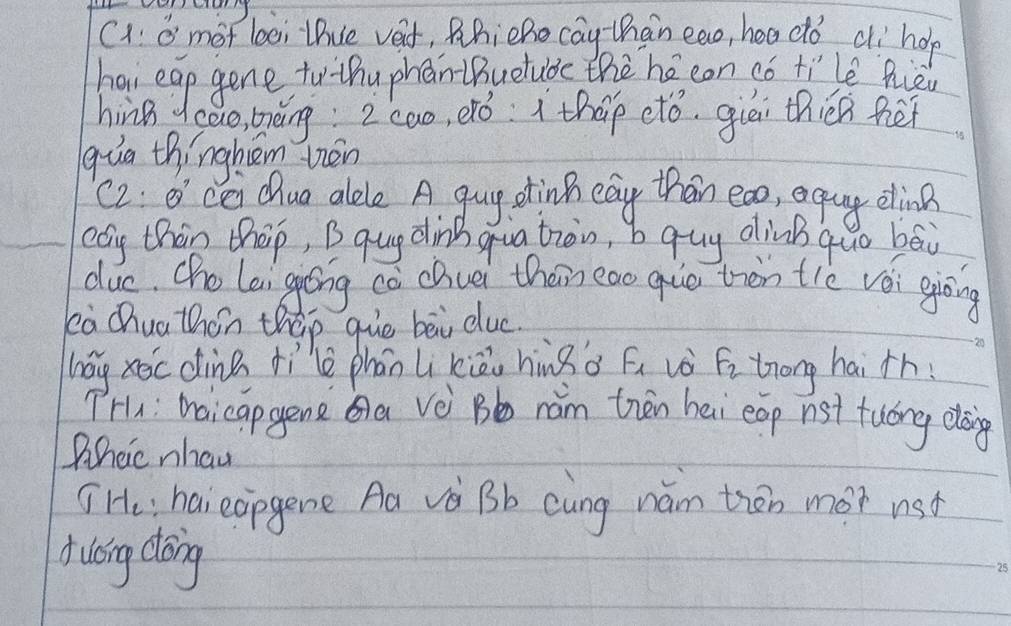 C1: ở một loài thực vật, khi cho cây thân cao, hoa đỏ dị hợp
hai cặp gene tự thụ phấn thu được thế hệ con có tỉ lệ kiểu
hình 1 cao, trắng : 2 cao, đỏ : 1 thấp đỏ. giải thích kết
quả thí nghiệm trên
C2: ở cà chua alele A quy định cây thân cao, a quy định
cây thân thấp, B quy định quả tròn, b quy định quả bầu
dục. Cho lai giống cà chua thân cao quả tròn t/c với giống
cà chua thân thấp quả bầu dục.
hãy xác định tỉ lệ phân li kiểu hình ở F1 và F2 trong hai th:
TH1: hai cặp gene Aa và Bb nằm trên hai cặp nst tương đồng
khác nhau
TH2: hai cặp gene Aa và Bb cùng nằm trên một nst
tương đồng
20
25